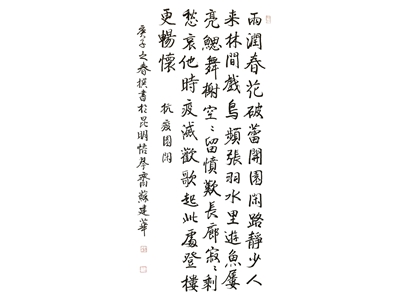 雨潤春花破蕾開園閉路靜少人
来林間戲鳥頻張羽水里遊魚屢
亮鰓舞榭空〻留憤歎長廊寂〻剩
愁哀他時疫滅歡歌起此處登樓
更暢懷
抗疫園閉
庚子之春撰書於昆明悟齋蘇建華